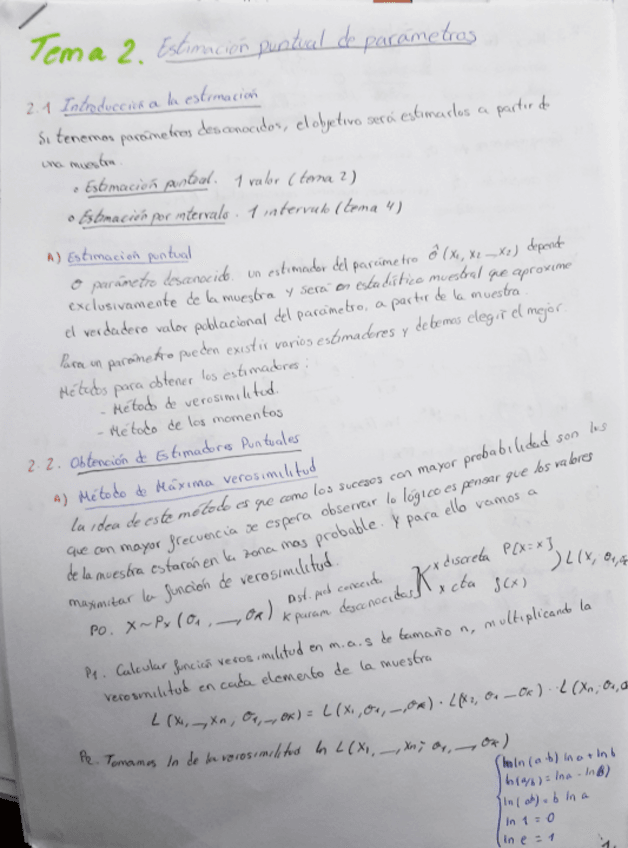 Tema 2. Estimación puntual de parámetros
2.1 Introducción a la estimación
Si tenemos parámetros desconocidos, el objetivo será estimarlos a partir de
una muestra.
• Estimación puntual. 1 valor (tema 2)
• Estimación por intervalo. 1 intervalo (tema 4)
A) Estimación puntual
θ parámetro desconocido. un estimador del parámetro θ̂ (x₁, x₂ ... x₂) depende
exclusivamente de la muestra y será un estadístico muestral que aproxime
el verdadero valor poblacional del parámetro, a partir de la muestra.
Para un parámetro pueden existir varios estimadores y debemos elegir el mejor.
Métodos para obtener los estimadores:
- Método de verosimilitud.
- Método de los momentos
2.2. Obtención de Estimadores Puntuales
A) Método de Máxima verosimilitud
La idea de este método es que como los sucesos con mayor probabilidad son los
que con mayor frecuencia se espera observar lo lógico es pensar que los valores
de la muestra estarán en la zona mas probable. Y para ello vamos a
maximitar la función de verosimilitud.
P0. X~Pₓ (θ₁, ..., θₖ) Dist. prob conocida
K param desconocidos
x discreta P[X=x]
x cta f(x)
L(x, θ₁,
P1. Calcular función verosimilitud en m.a.s de tamaño n, multiplicando la
verosimilitud en cada elemento de la muestra
L (x₁, ..., xₙ, θ₁, ..., θₖ) = L(x₁, θ₁, ..., θₖ) · L(x₂, θ₁ ... θₖ) ·· L(xₙ, θ₁,
P2. Tomamos ln de la verosimilitud ln L(x₁, ..., xₙ; θ₁, ..., θₖ)
ln(a·b) ln a + ln b
ln(a/b) = ln a - ln b
ln(aᵇ) = b ln a
ln 1 = 0
ln e = 1
1.